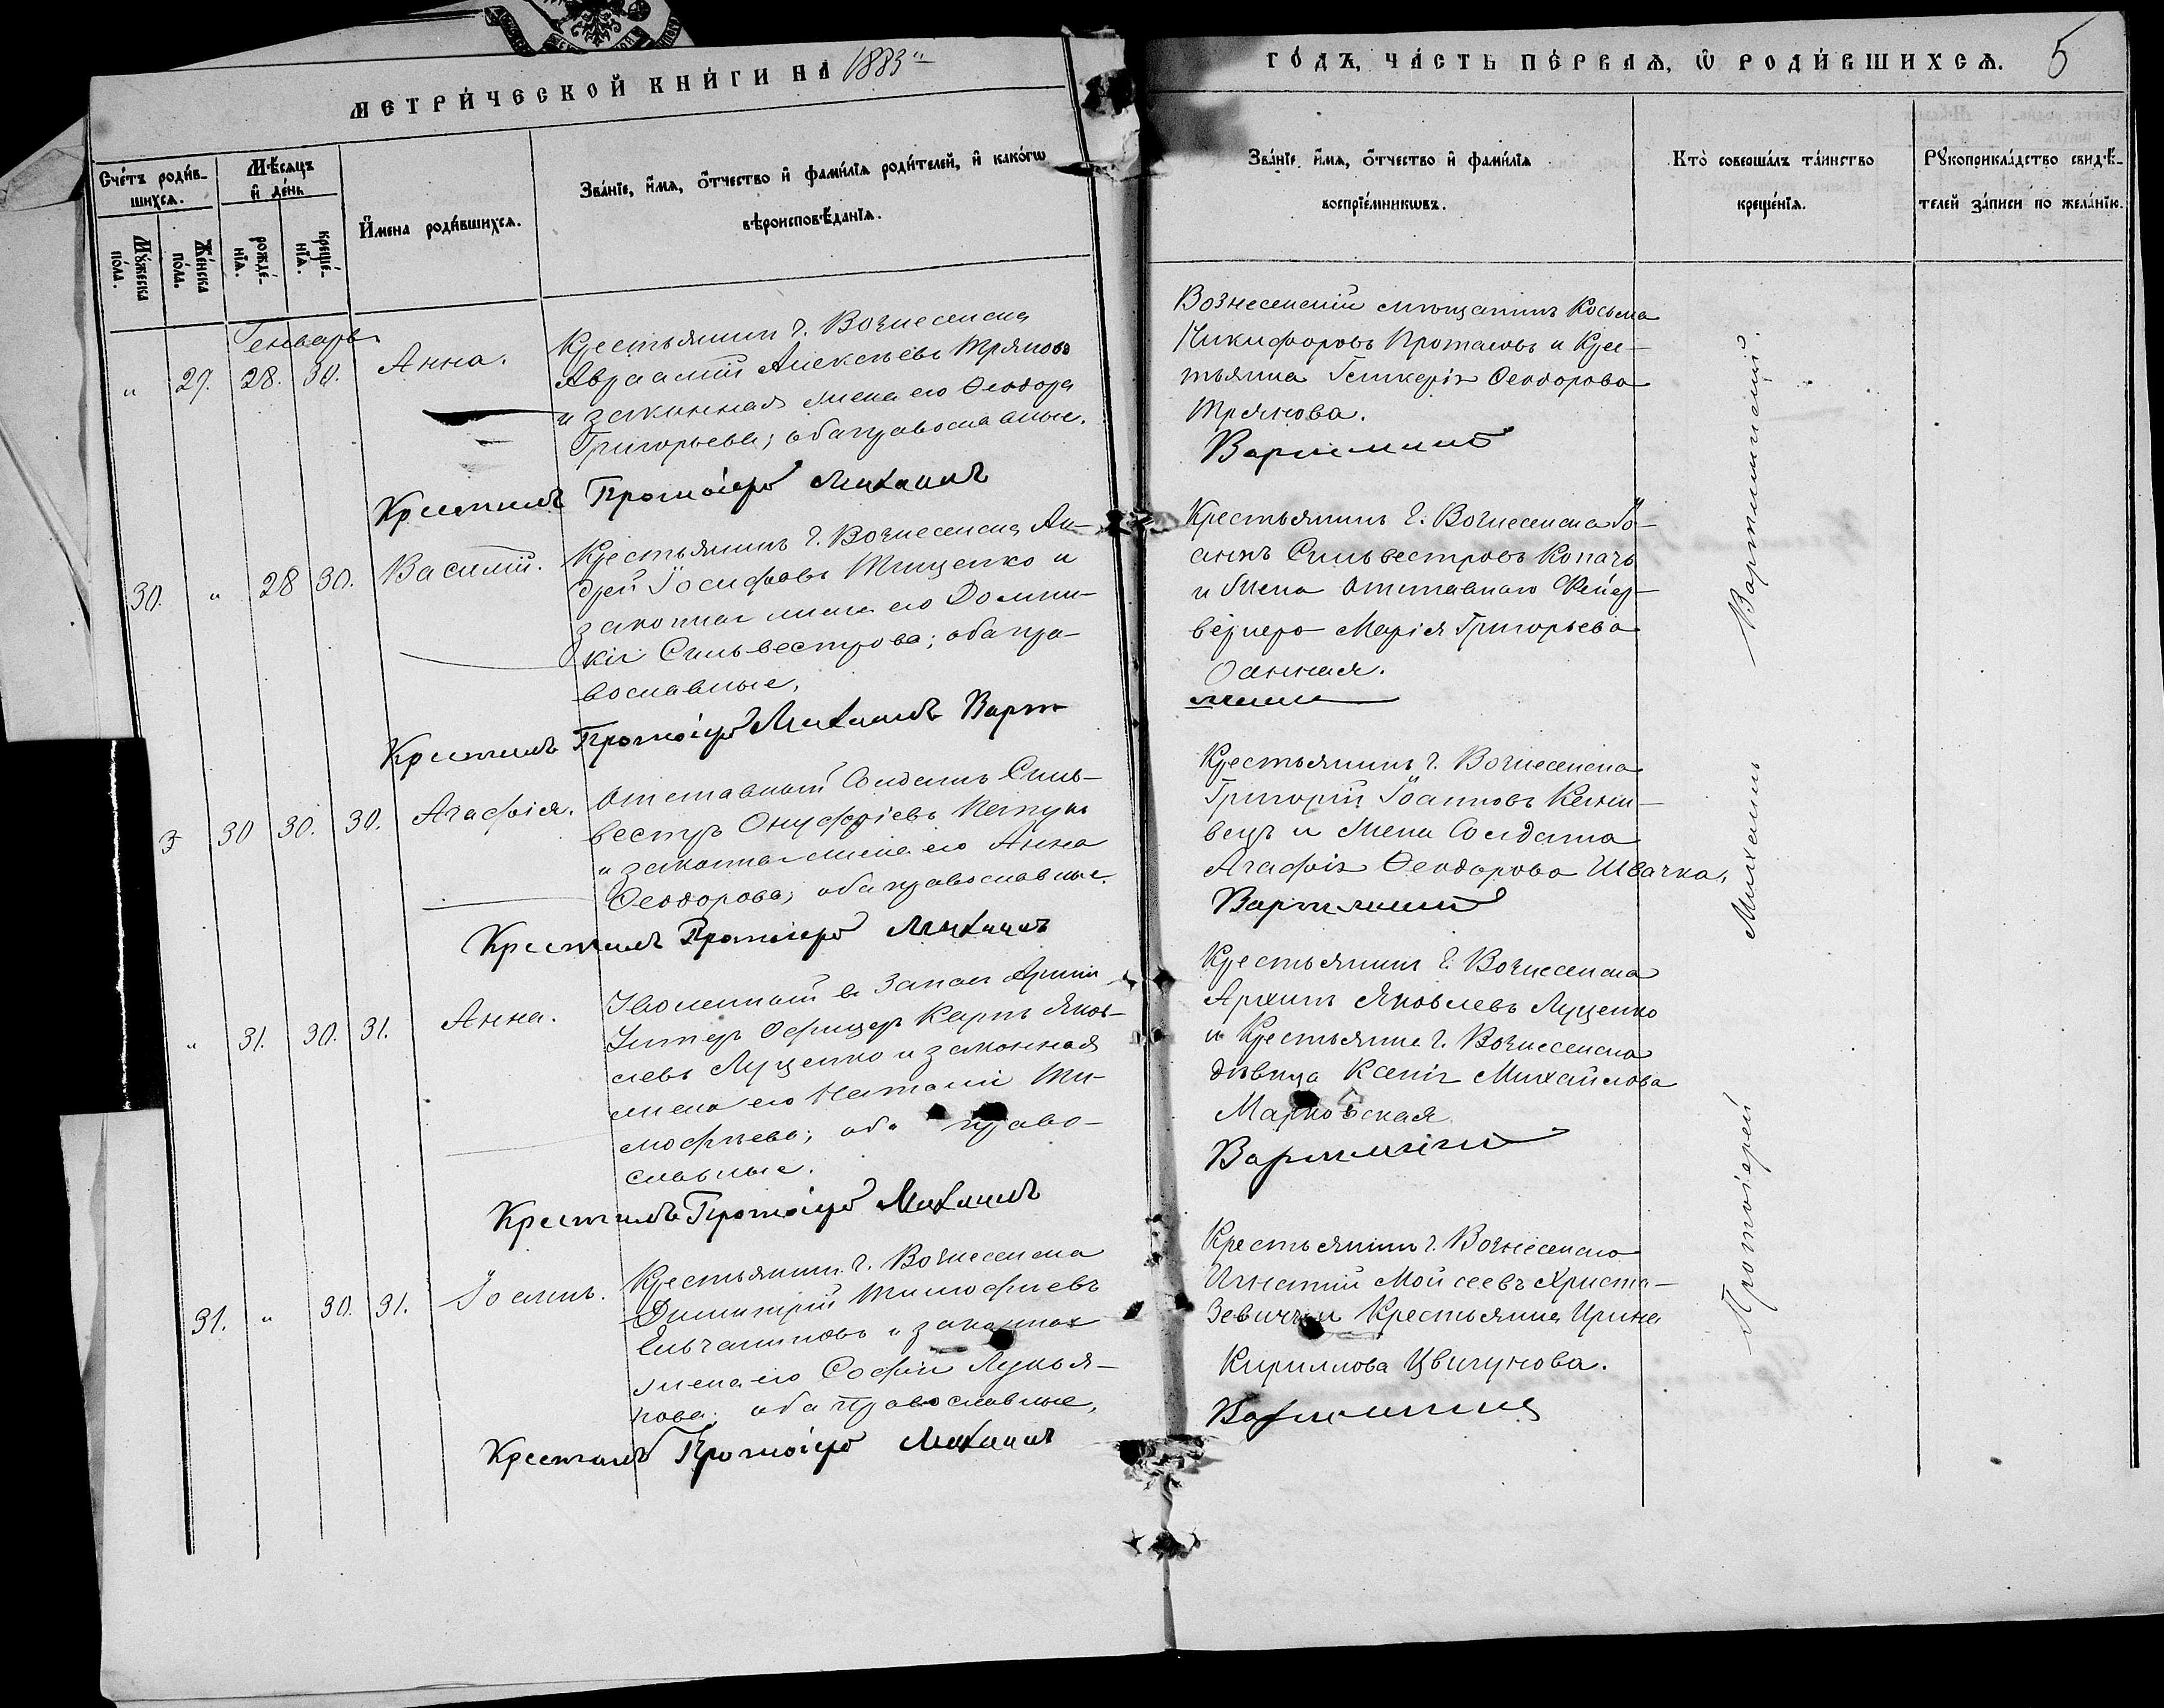 МЕТРИ́ЧЕСКОЙ КНИ́ГИ НА 1883й
ГО́ДЪ, ЧА́СТЬ ПЕ́РВАѦ, Ѽ РОДИ́ВШИХСѦ. 5
Сче́тъ роди́в-
шихсѧ.
Мꙋ́жеска
по́ла.
Же́нска
по́ла.
Мѣ́сѧцъ
и҆ де́нь
рожде́-
нїѧ.
креще́-
нїѧ.
И҆мена роди́вшихсѧ.
Зва́нїе, и҆́мѧ, ѻ҆́тчество и҆ фами́лїѧ роди́телей, и҆ како́гѡ
вѣроисповѣ́данїѧ.
Зва́нїе, и҆́мѧ, ѻ҆́тчество и҆ фами́лїѧ
воспрїе́мникѡвъ.
Кто̀ соверша́лъ та́инство
креще́нїѧ.
Рꙋкоприкла́дство свидѣ́-
телей за́писи по жела́нїю.
Генварь
" 27. 28. 30. Анна.
Крестьянинъ г. Вознесенска
Авраамій Алексѣевъ Тряновъ
и законная жена его Ѳеодора
Григорьева; оба православные.
Крестилъ Протоіерей Михаилъ
Вознесенскій мѣщанинъ Косьма
Никифоровъ Протасовъ и Крес-
тьянка Гликерія Ѳеодорова
Трянова.
30. " 28 30. Василій.
Крестьянинъ г. Вознесенска Ан-
дрей Іосифовъ Тищенко и
законная жена его Домни-
кія Сильвестрова; оба пра-
вославные.
Крестилъ Протоіерей Михаилъ Варт
Крестьянинъ г. Вознесенска Іо-
аннъ Сильвестровъ Копачъ
и Жена Отставнаго Фейер-
веркера Марія Григорьева
30 30. 30. Агафія.
Отставной Солдатъ Силь-
вестръ Онуфріевъ
и законная жена его Анна
Ѳеодорова; оба православные.
Крестилъ Протоіерей Михаилъ
Крестьянинъ г. Вознесенска
Григорій Іоанновъ
вецъ и Жена Солдата
Агафія Ѳеодорова Швачка.
" 31. 30. 31. Анна.
Уволенный въ Запасъ Арміи
Унтеръ Офицеръ Карпъ Яков-
левъ Луценко и законная
жена его Наталія Ти-
моѳеева; оба право-
славные.
Крестилъ Протоіерей Михаилъ
Крестьянинъ г. Вознесенска
Архипъ Яковлевъ Луценко
и Крестьянка г. Вознесенска
дѣвица Ксенія Михайлова
Марковская
31. " 30. 31. Іоаннъ.
Крестьянинъ г. Вознесенска
Димитрій Тимофѣевъ
Ельчаниновъ и законная
жена его Софія Лукья-
нова; оба Православные,
Крестилъ Протоіерей Михаилъ
Крестьянинъ г. Вознесенска
Игнатій Мойсеевъ Христа-
и Крестьянка Ирина
Кириллова Цвигунова.
Протоіерей Михаилъ